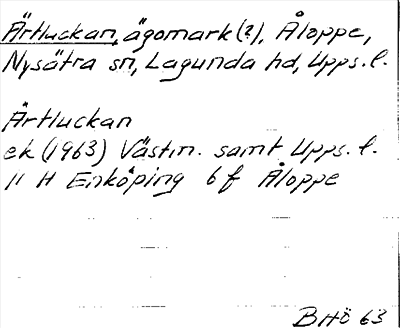 Ärtluckan, ägomark(?), Åloppe,
Nysätra sn, Lagunda hd, Upps. l.
Ärtluckan
ek (1963) Västm. samt Upps. l.
11 H Enköping 6 f Åloppe
BHÖ 63